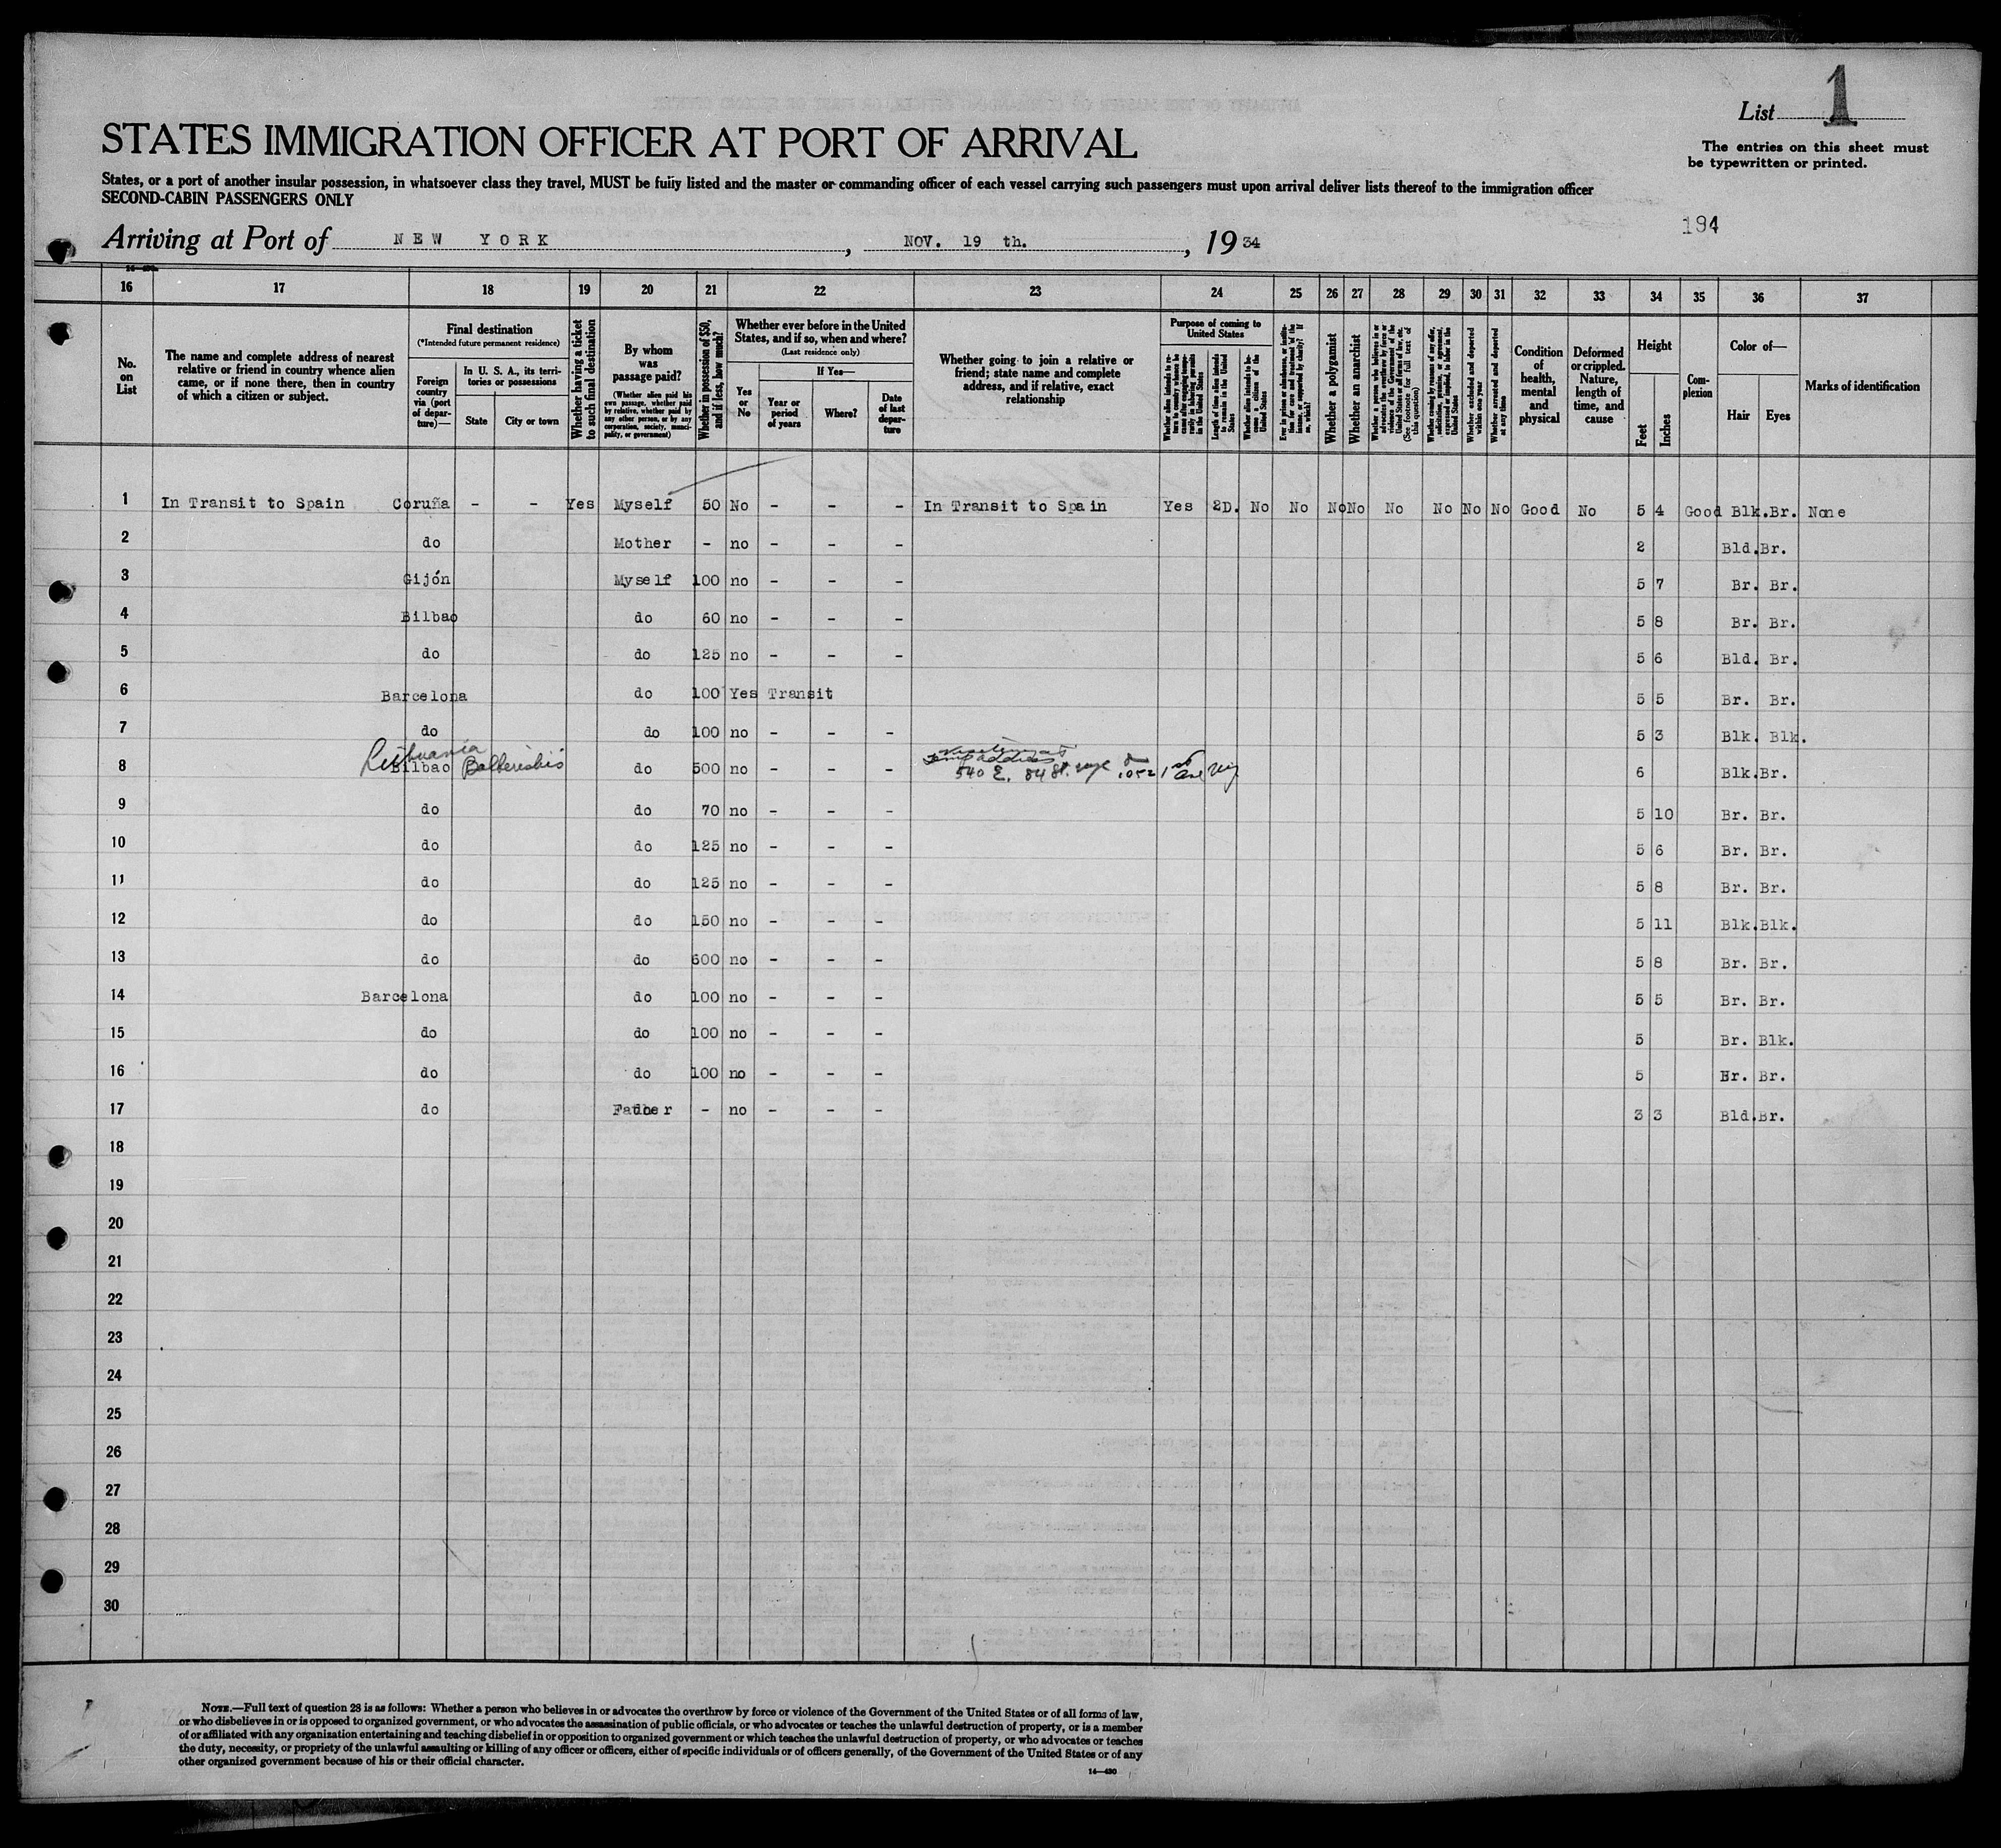 List 1
The entries on this sheet must
be typewritten or printed.
STATES IMMIGRATION OFFICER AT PORT OF ARRIVAL
States, or a port of another insular possession, in whatsoever class they travel, MUST be fully listed and the master or commanding officer of each vessel carrying such passengers must upon arrival deliver lists thereof to the immigration officer
SECOND-CABIN PASSENGERS ONLY
194
Arriving at Port of NEW YORK, NOV. 19 th., 19 34
16 17 18 19 20 21 22 23 24 25 26 27 28 29 30 31 32 33 34 35 36 37
No. on List
The name and complete address of nearest relative or friend in country whence alien came, or if none there, then in country of which a citizen or subject.
Final destination
(*Intended future permanent residence)
Foreign country via (port of departure)—
In U. S. A., its territories or possessions
State
City or town
Whether having a ticket to such final destination
By whom was passage paid?
(Whether alien paid his own passage, whether paid by relative, whether paid by any other person, or by any corporation, society, municipality, or government)
Whether in possession of $50, and if less, how much?
Whether ever before in the United States, and if so, when and where?
(Last residence only)
Yes or No
If Yes—
Year or period of years
Where?
Date of last departure
Whether going to join a relative or friend; state name and complete address, and if relative, exact relationship
Purpose of coming to United States
Length of time alien intends to remain in the United States
Whether alien intends to become a citizen of the United States
Whether a polygamist
Whether an anarchist
Whether excluded and deported within one year
Whether arrested and deported at any time
Condition of health, mental and physical
Deformed or crippled. Nature, length of time, and cause
Height
Feet
Inches
Complexion
Color of—
Hair
Eyes
Marks of identification
1 In Transit to Spain Coruña - - Yes Myself 50 No - - - In Transit to Spain Yes 2D. No No No No No No No No Good No 5 4 Good Blk. Br. None
2 do Mother - no - - - 2 Bld. Br.
3 Gijón Myself 100 no - - - 5 7 Br. Br.
4 Bilbao do 60 no - - - 5 8 Br. Br.
5 do do 125 no - - - 5 6 Bld. Br.
6 Barcelona do 100 Yes Transit 5 5 Br. Br.
7 do do 100 no - - - 5 3 Blk. Blk.
Lithuania
8 Bilbao do 500 no - - - 540 E. 84 St. 6 Blk. Br.
9 do do 70 no - - - 5 10 Br. Br.
10 do do 125 no - - - 5 6 Br. Br.
11 do do 125 no - - - 5 8 Br. Br.
12 do do 150 no - - - 5 11 Blk. Blk.
13 do do 600 no - - - 5 8 Br. Br.
14 Barcelona do 100 no - - - 5 5 Br. Br.
15 do do 100 no - - - 5 Br. Blk.
16 do do 100 no - - - 5 Br. Br.
17 do Father - no - - - 3 3 Bld. Br.
18
19
20
21
22
23
24
25
26
27
28
29
30
NOTE.—Full text of question 28 is as follows: Whether a person who believes in or advocates the overthrow by force or violence of the Government of the United States or of all forms of law,
or who disbelieves in or is opposed to organized government, or who advocates the assassination of public officials, or who advocates or teaches the unlawful destruction of property, or is a member
of or affiliated with any organization entertaining and teaching disbelief in or opposition to organized government or which teaches the unlawful destruction of property, or who advocates or teaches
the duty, necessity, or propriety of the unlawful assaulting or killing of any officer or officers, either of specific individuals or of officers generally, of the Government of the United States or of any
other organized government because of his or their official character.
14—430